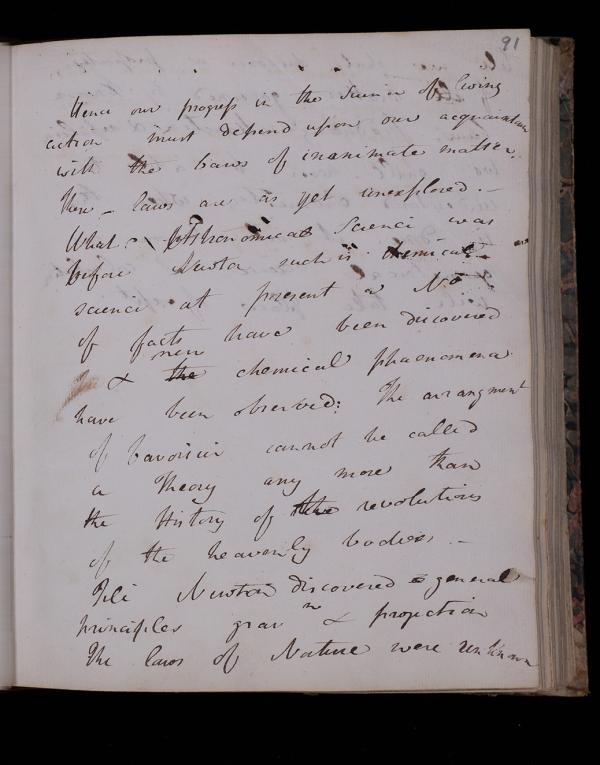 91
Hence our progress in the Science of living
action must depend upon our acquaintance
with the Laws of inanimate matter.
These laws are as yet unexplored. –
What Astronomical Science was
before Newton such is chemical
science at present a No
of facts have been discovered
new
& the chemical phaenomena
have been observed: The arrangment
of Lavoisier cannot be called
a Theory any more than
the History of the revolutions
of the heavenly bodies –
Till Newton discovered general
principles grav n & projection
The laws of Nature were unknown